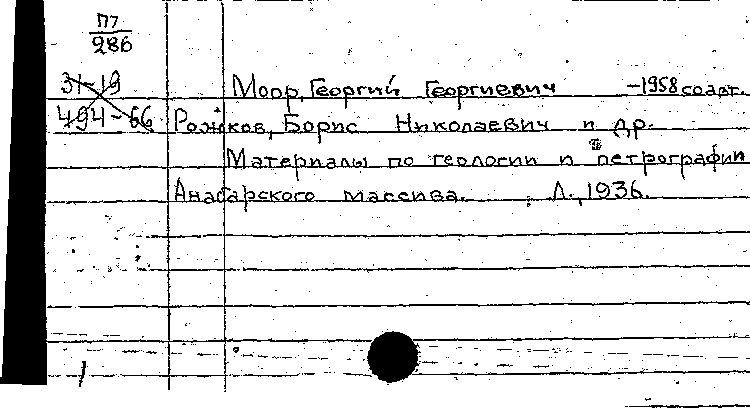 П7
286
31-19
494-66
Моор, Георгий Георгиевич -1958 соавт.
Рожков, Борис Николаевич и др.
Материалы по геологии и петрографии
Анабарского массива. Л., 1936.